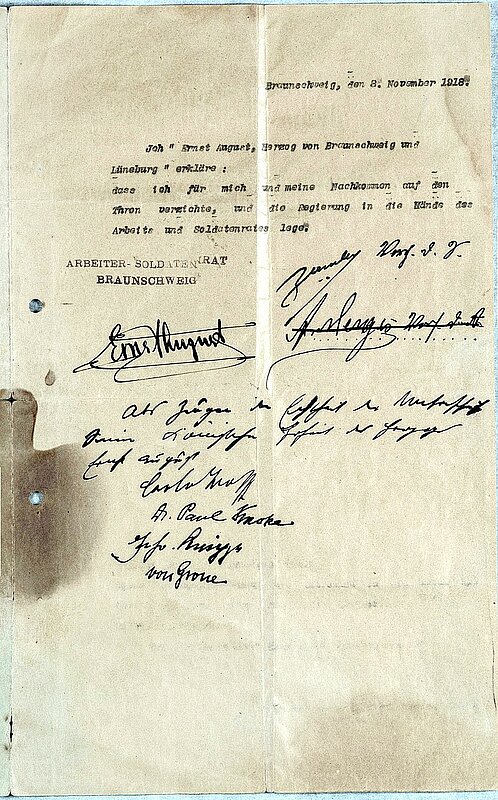 Braunschweig, den 8. November 1918.
Jch " Ernst August, Herzog von Braunschweig und
Lüneburg " erkläre :
dass ich für mich und meine Nachkommen auf den
Thron verzichte, und die Regierung in die Hände des
Arbeits und Soldatenrates lege.
ARBEITER-SOLDATENRAT
BRAUNSCHWEIG
Vors. d. S.
Vors. d. A
Ernst August
Als Zeugen der Echtheit der Unterschrift
Seiner Königlichen Hoheit des Herzogs
Ernst August
Carls Wolff
Dr. Paul Knoke
Frhr. Knigge
von Grone